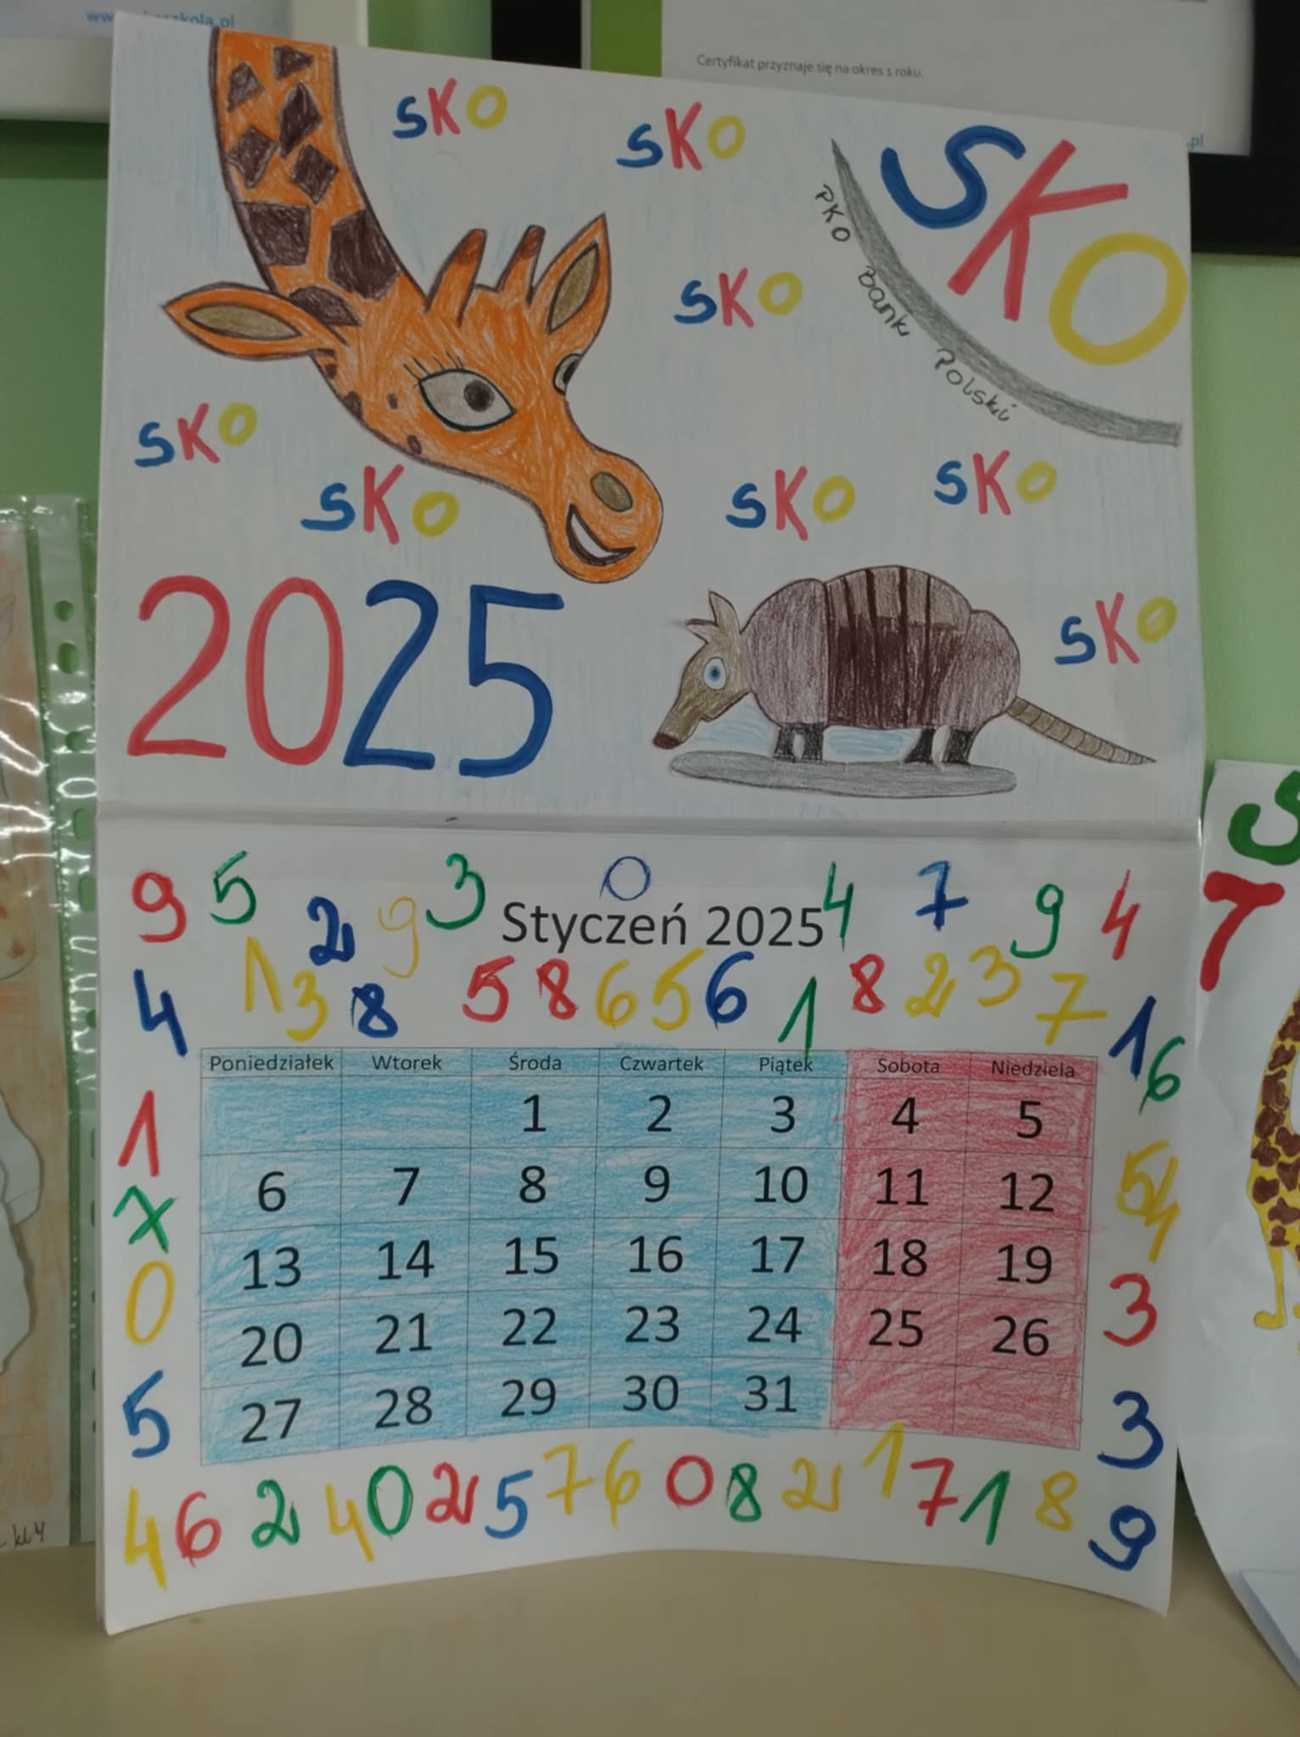 Certyfikat przyznaje się na okres 1 roku.
.pl
SKO
SKO
SKO
PKO Bank Polski
SKO
SKO
SKO
SKO
SKO
SKO
2025
9 5 2 9 3 0 4 7 9 4
Styczeń 2025
4 1 3 8 5 8 6 5 6 1 8 2 3 7 1 6
Poniedziałek Wtorek Środa Czwartek Piątek Sobota Niedziela
1 2 3 4 5
6 7 8 9 10 11 12
13 14 15 16 17 18 19
20 21 22 23 24 25 26
27 28 29 30 31
1
7
0
5
5 4
3
3
9
4 6 2 4 0 2 5 7 6 0 8 2 1 7 1 8